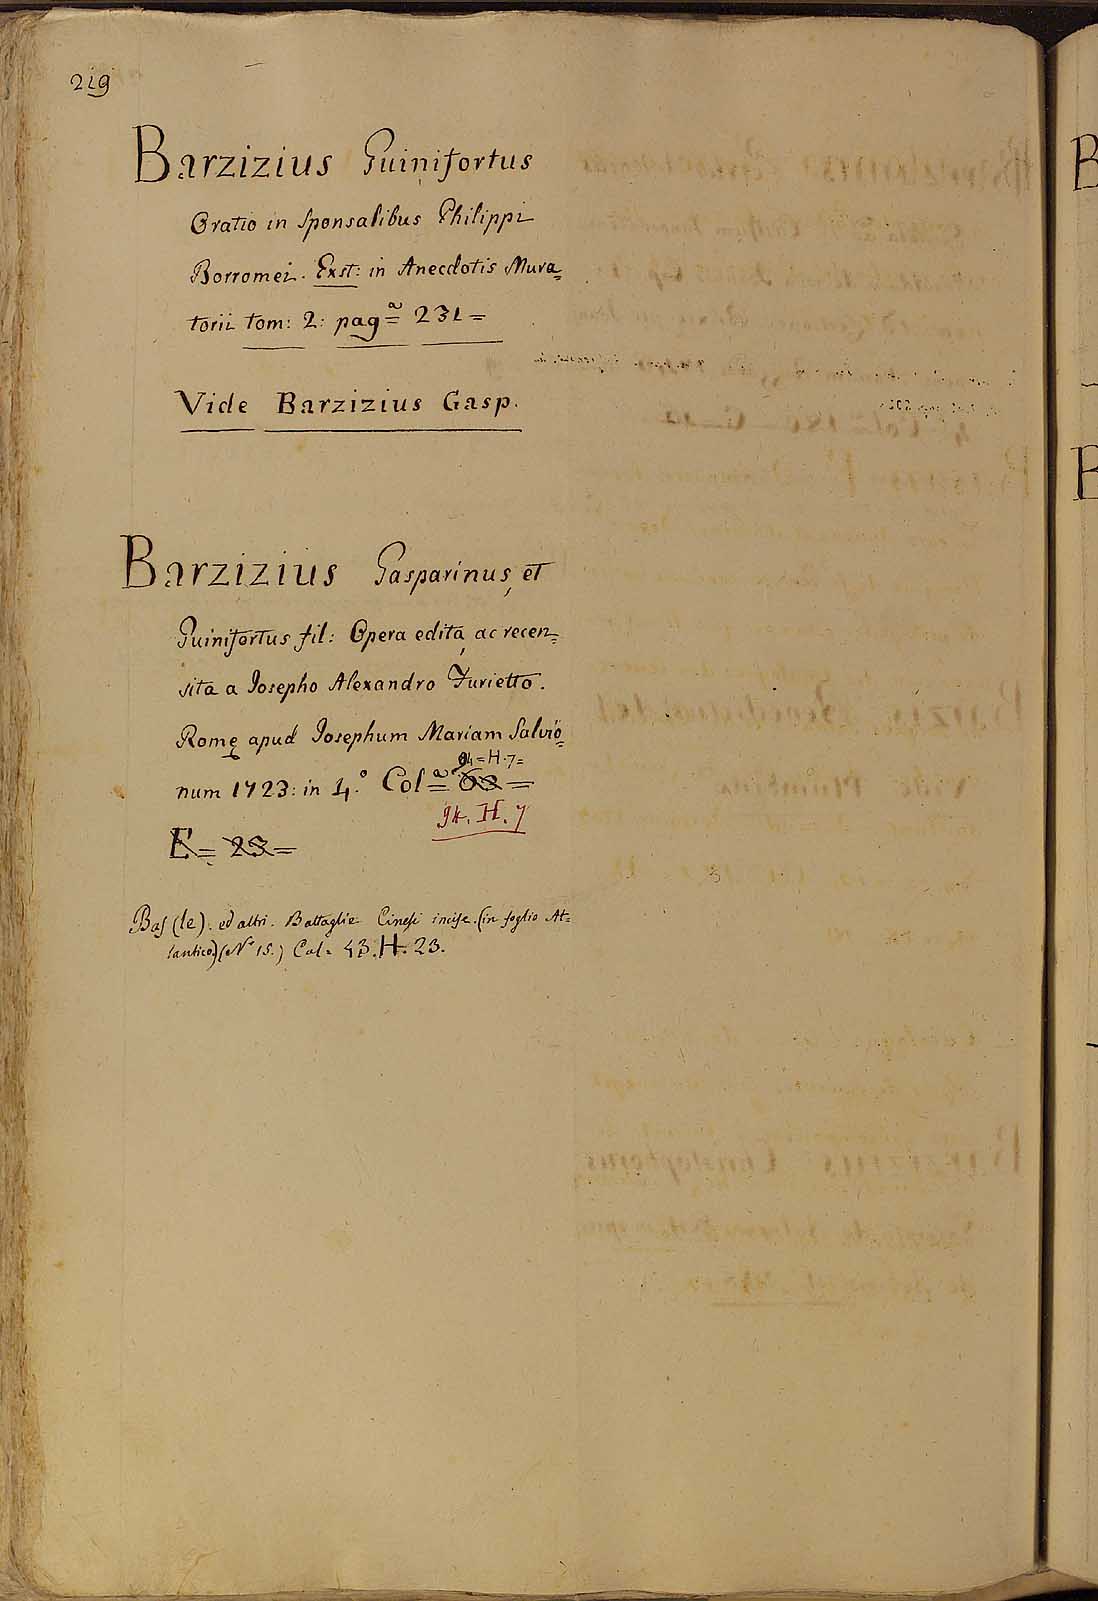 219
Barzizius Guinifortus
Oratio in Sponsalibus Philippi
Borromei. Exst: in Anecdotis Mura=
torii tom: 2: pagª= 231=
Vide Barzizius Gasp.
Barzizius Gasparinus, et
Guinifortus fil: Opera edita, ac recen=
sita a Josepho Alexandro Furietto.
Romę apud Josephum Mariam Salvio=
94=H.7=
num 1723: in 4.° Colª= 63=
94. H. 7
E= 23=
Bas (le). ed altri. Battaglie Cinesi incise. (in foglio At=
lantico) (N° 15.) Col= 43. H. 23.